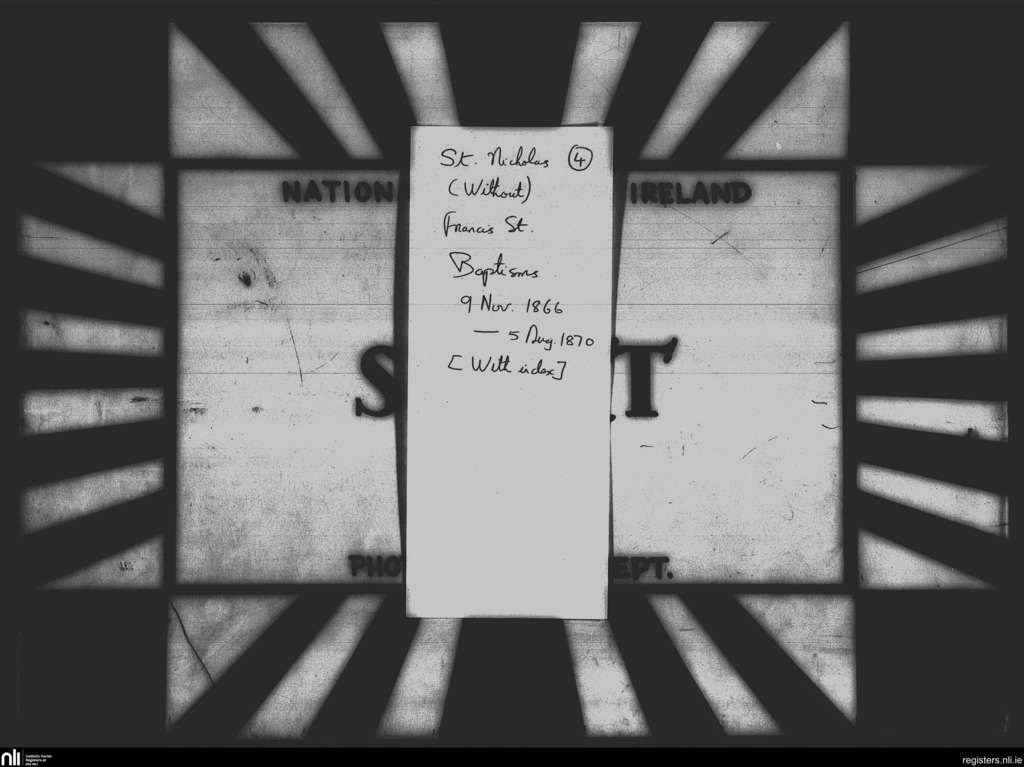 St. Nicholas 4
(Without)
Francis St.
Baptisms
9 Nov. 1866
— 5 Aug. 1870
[With index]
NATION IRELAND
S T
PHO EPT.
nli Catholic Parish Registers at the NLI
registers.nli.ie